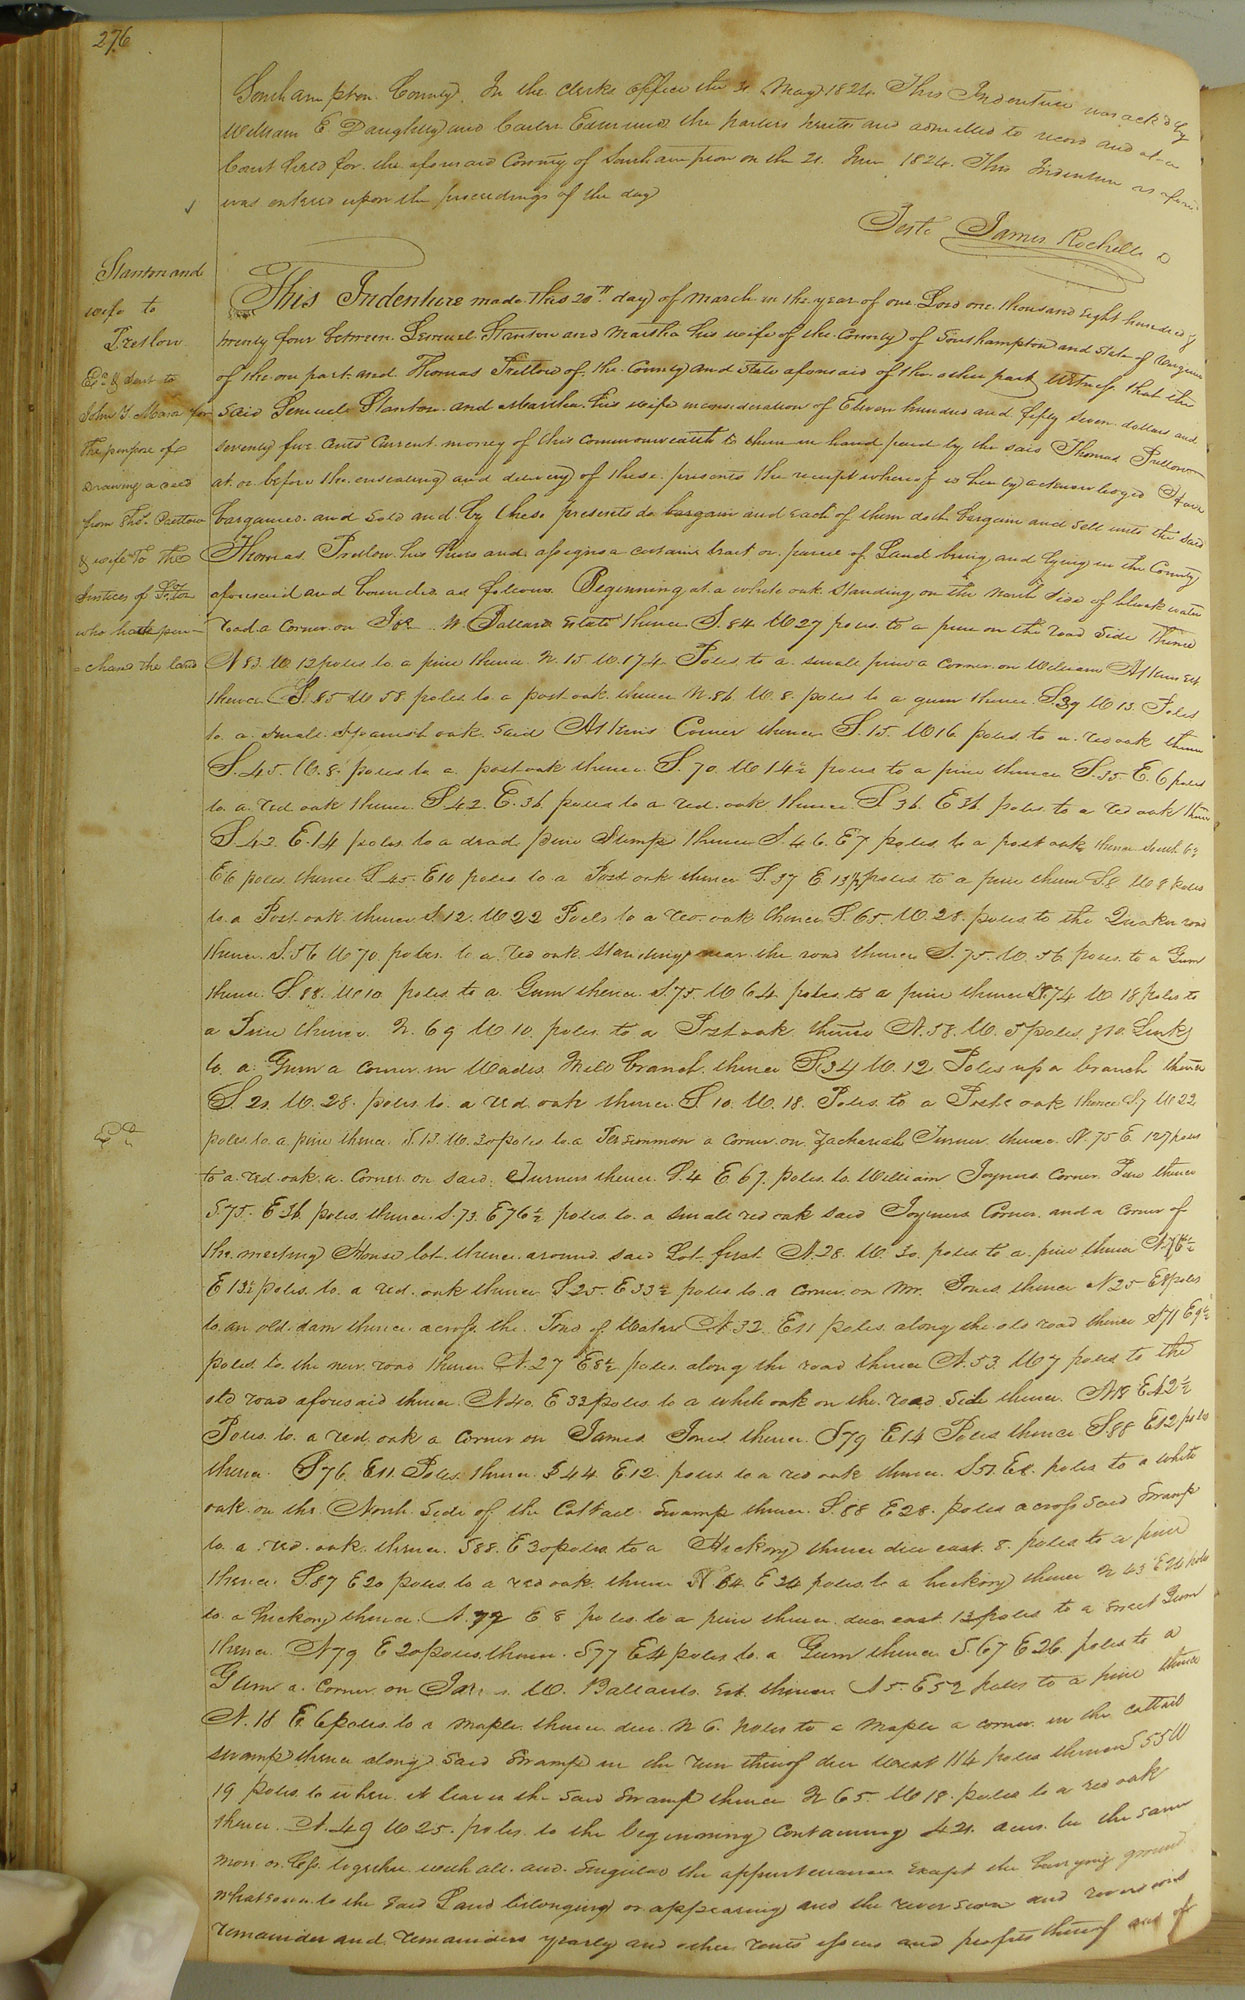 276
Southampton County. In the clerks office the 31 May 1824 This Indenture was ack'd by
William E Daughtry and Carter Edmunds the parties hereto and admitted to record and at a
Court held for the aforesaid County of Southampton on the 21. June 1824. This Indenture as aforesd
was entered upon the proceedings of the day
Teste James Rochelle
Stanton and
wife to
Pretlow
Exd & sent to
John Y. Mason for
the purpose of
drawing a deed
from Thos. Pretlow
& wife to the
Justices of
who hath pur-
=chased the land
This Indenture made this 20th day of March in the year of our Lord one thousand eight hundred &
twenty four between Lemuel Stanton and Martha his wife of the County of Southampton and State of Virginia
of the one part and Thomas Pretlow of the County and State aforesaid of the other part Witness that the
said Lemuel Stanton and Martha his wife in consideration of Eleven hundred and fifty seven dollars and
seventy five cents current money of this commonwealth to them in hand paid by the said Thomas Pretlow
at or before the ensealing and delivery of these presents the receipt whereof is hereby acknowledged Have
bargained and sold and by these presents do bargain and each of them doth bargain and sell unto the said
Thomas Pretlow his heirs and assigns a certain tract or parcel of Land being and lying in the County
aforesaid and bounded as follows. Beginning at a white oak standing on the North side of black water
road a corner on W Ballard estate thence S. 84 W 27 poles to a pine on the road side thence
N 83. W 12 poles to a pine thence N. 15 W. 174 Poles to a small pine a corner on William Atkins est
thence S. 85 W 58 poles to a post oak thence N. 86 W. 8. poles to a gum thence S. 39 W 13 Poles
to a small Spanish oak said Atkins Corner thence S. 15. W 16 poles to a red oak thence
S. 45. W. 8 poles to a post oak thence S. 70. W 14½ poles to a pine thence S. 35 E. 6 poles
to a red oak thence S 42. E. 36 poles to a red oak thence S 36. E 36 poles to a red oak thence
S. 42 E 14 poles to a dead pine Stump thence S. 46. E 7 poles to a post oak thence South 6½
E 6 poles thence S. 45. E 10 poles to a Post oak thence S. 37 E 13½ poles to a pine thence S. 8 W 8 poles
to a Post oak thence S 12. W 22 Poles to a red oak thence S. 65. W. 28. poles to the Quaker road
thence S. 56 W 70 poles to a red oak standing near the road thence S. 75. W. 56 poles to a Gum
thence S. 88. W 10 poles to a Gum thence S. 75. W 64 poles to a pine thence 74 W 18 poles to
a Pine thence N. 69 W 10 poles to a Post oak thence N. 58. W. 5 poles & 10 Links
to a Gum a corner in Wades Mill branch thence S 34 W. 12 Poles up a branch thence
S. 21. W. 28. poles to a red oak thence S. 10. W. 18. Poles to a Post oak thence S. 7 W 22
Exd
poles to a pine thence S. 13. W. 30 poles to a Persimmon a corner on Zachariah Turner thence N. 75 E. 127 poles
to a red oak a corner on said Turners thence S. 4 E 67 poles to William Joyners Corner Pine thence
S. 75. E 36 poles thence S. 73. E 76½ poles to a small red oak said Joyners Corner and a corner of
the meeting House lot thence around said Lot first N. 28. W. 30 poles to a pine thence N. 76½
E 13½ poles to a red oak thence S 25. E 33½ poles to a corner on Mr. Jones thence N 25 E 8 poles
to an old dam thence across the Pond of Water N 32 E 11 poles along the old road thence S 71 E 9½
poles to the new road thence N. 27 E 8½ poles along the road thence N. 53. W 7 poles to the
old road aforesaid thence N 40. E 32 poles to a white oak on the road Side thence E 12½
Poles to a red oak a Corner on James Jones thence S 79 E 14 Poles thence S 88 E 12 poles
thence S 76 E 11 Poles thence S 44 E 12 poles to a red oak thence S 51 E 8. poles to a white
oak on the North Side of the Cattail Swamp thence S. 88 E 28. poles across said Swamp
to a red oak thence S 88. E 30 poles to a Hickory thence due east 8. poles to a pine
thence S. 87 E 20 poles to a red oak thence N 64. E 34 poles to a hickory thence N 43 E 24 poles
to a hickory thence N. 77 E 8 poles to a pine thence due east 12 poles to a sweet Gum
thence N 79 E 20 poles thence S 77 E 4 poles to a Gum thence S. 67 E 26 poles to a
Gum a corner on W. Ballards Est. thence N 5. E 52 poles to a pine thence
N. 18 E 6 poles to a maple thence due N 6. poles to a Maple a corner in the cattail
swamp thence along said Swamp in the run thereof due West 114 poles thence S 55 W
19 poles to where it leaves the said Swamp thence N 65. W 18. poles to a red oak
thence N. 49 W 25. poles to the beginning Containing 421 acres be the same
more or less together with all and singular the appurtenances except the burying ground
whatsoever to the said Land belonging or appearing and the reversion and reversions
remainder and remainders yearly and other rents issues and profits thereof and of